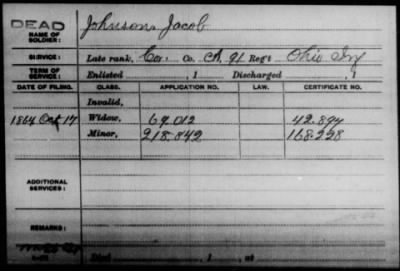 DEAD
NAME OF SOLDIER: Johnson, Jacob
SERVICE: Late rank, Cor. Co. A, 91 Reg't Ohio Inf
TERM OF SERVICE: Enlisted , 1 Discharged , 1
DATE OF FILING. CLASS. APPLICATION NO. LAW. CERTIFICATE NO.
Invalid,
1864 Oct 17 Widow, 69.012 42.894
Minor, 218.842 168.228
ADDITIONAL SERVICES:
REMARKS:
Died , 1 , at